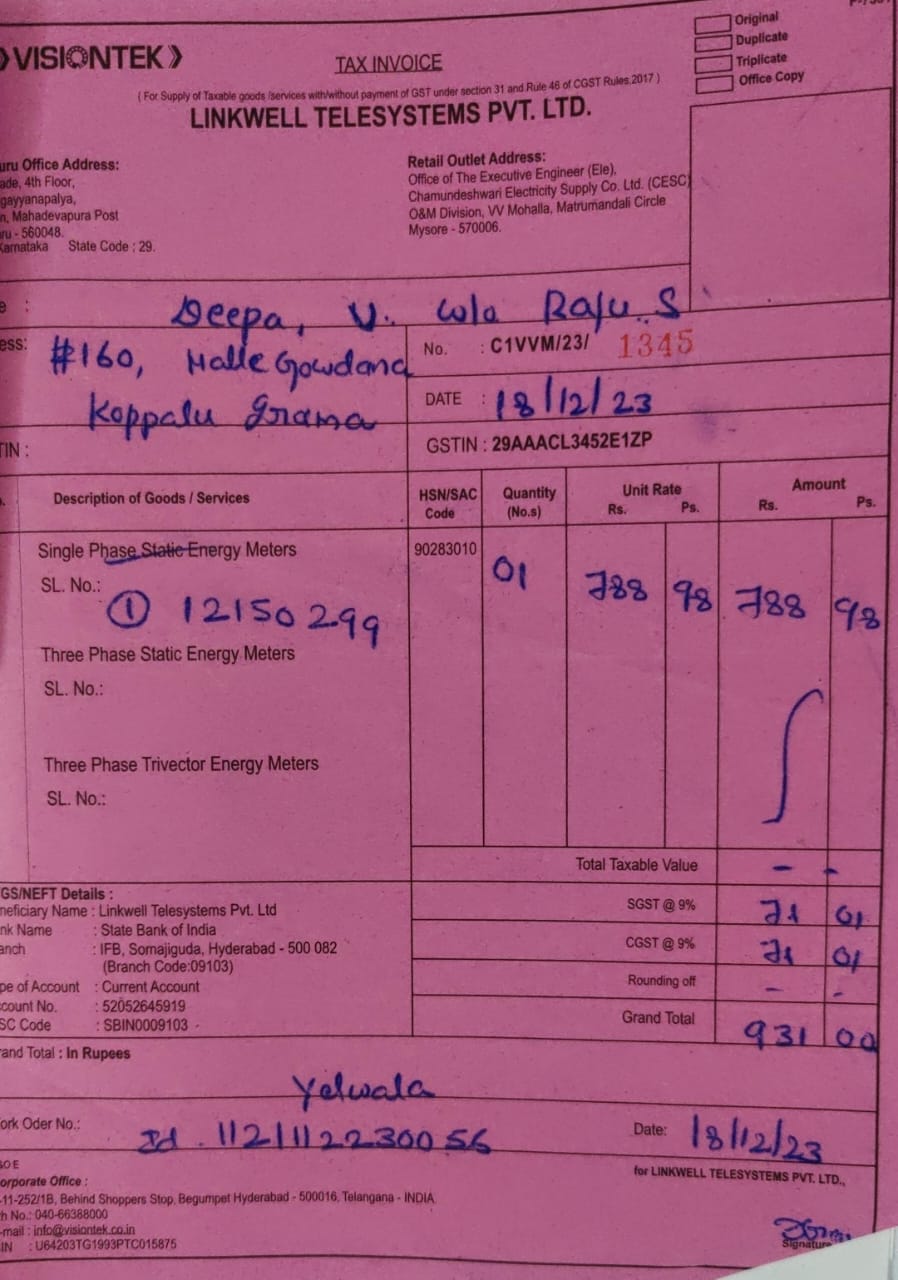 VISIONTEK
TAX INVOICE
Original
Duplicate
Triplicate
Office Copy
( For Supply of Taxable goods /services with/without payment of GST under section 31 and Rule 46 of CGST Rules,2017 )
LINKWELL TELESYSTEMS PVT. LTD.
uru Office Address:
ade, 4th Floor,
gayyanapalya,
n, Mahadevapura Post
ru - 560048.
Karnataka State Code : 29.
Retail Outlet Address:
Office of The Executive Engineer (Ele),
Chamundeshwari Electricity Supply Co. Ltd. (CESC)
O&M Division, VV Mohalla, Matrumandali Circle
Mysore - 570006.
e : Deepa, V. W/o Raju. S
ess: #160, Halle Gowdana
Koppalu Grama
No. : C1VVM/23/ 1345
DATE : 18/12/23
TIN :
GSTIN : 29AAACL3452E1ZP
Description of Goods / Services HSN/SAC Code Quantity (No.s) Unit Rate Rs. Ps. Amount Rs. Ps.
Single Phase Static Energy Meters 90283010 01 788 98 788 98
SL. No.:
① 12150299
Three Phase Static Energy Meters
SL. No.:
Three Phase Trivector Energy Meters
SL. No.:
Total Taxable Value - -
SGST @ 9% 71 01
CGST @ 9% 71 01
Rounding off - -
Grand Total 931 00
GS/NEFT Details :
neficiary Name : Linkwell Telesystems Pvt. Ltd
nk Name : State Bank of India
anch : IFB, Somajiguda, Hyderabad - 500 082
(Branch Code:09103)
pe of Account : Current Account
count No. : 52052645919
SC Code : SBIN0009103
and Total : In Rupees
Yelwala
ork Oder No.: Id . 1121112230056
Date: 18/12/23
for LINKWELL TELESYSTEMS PVT. LTD.,
&OE
orporate Office :
-11-252/1B, Behind Shoppers Stop, Begumpet Hyderabad - 500016, Telangana - INDIA
h No.: 040-66388000
-mail : info@visiontek.co.in
IN : U64203TG1993PTC015875
Signature